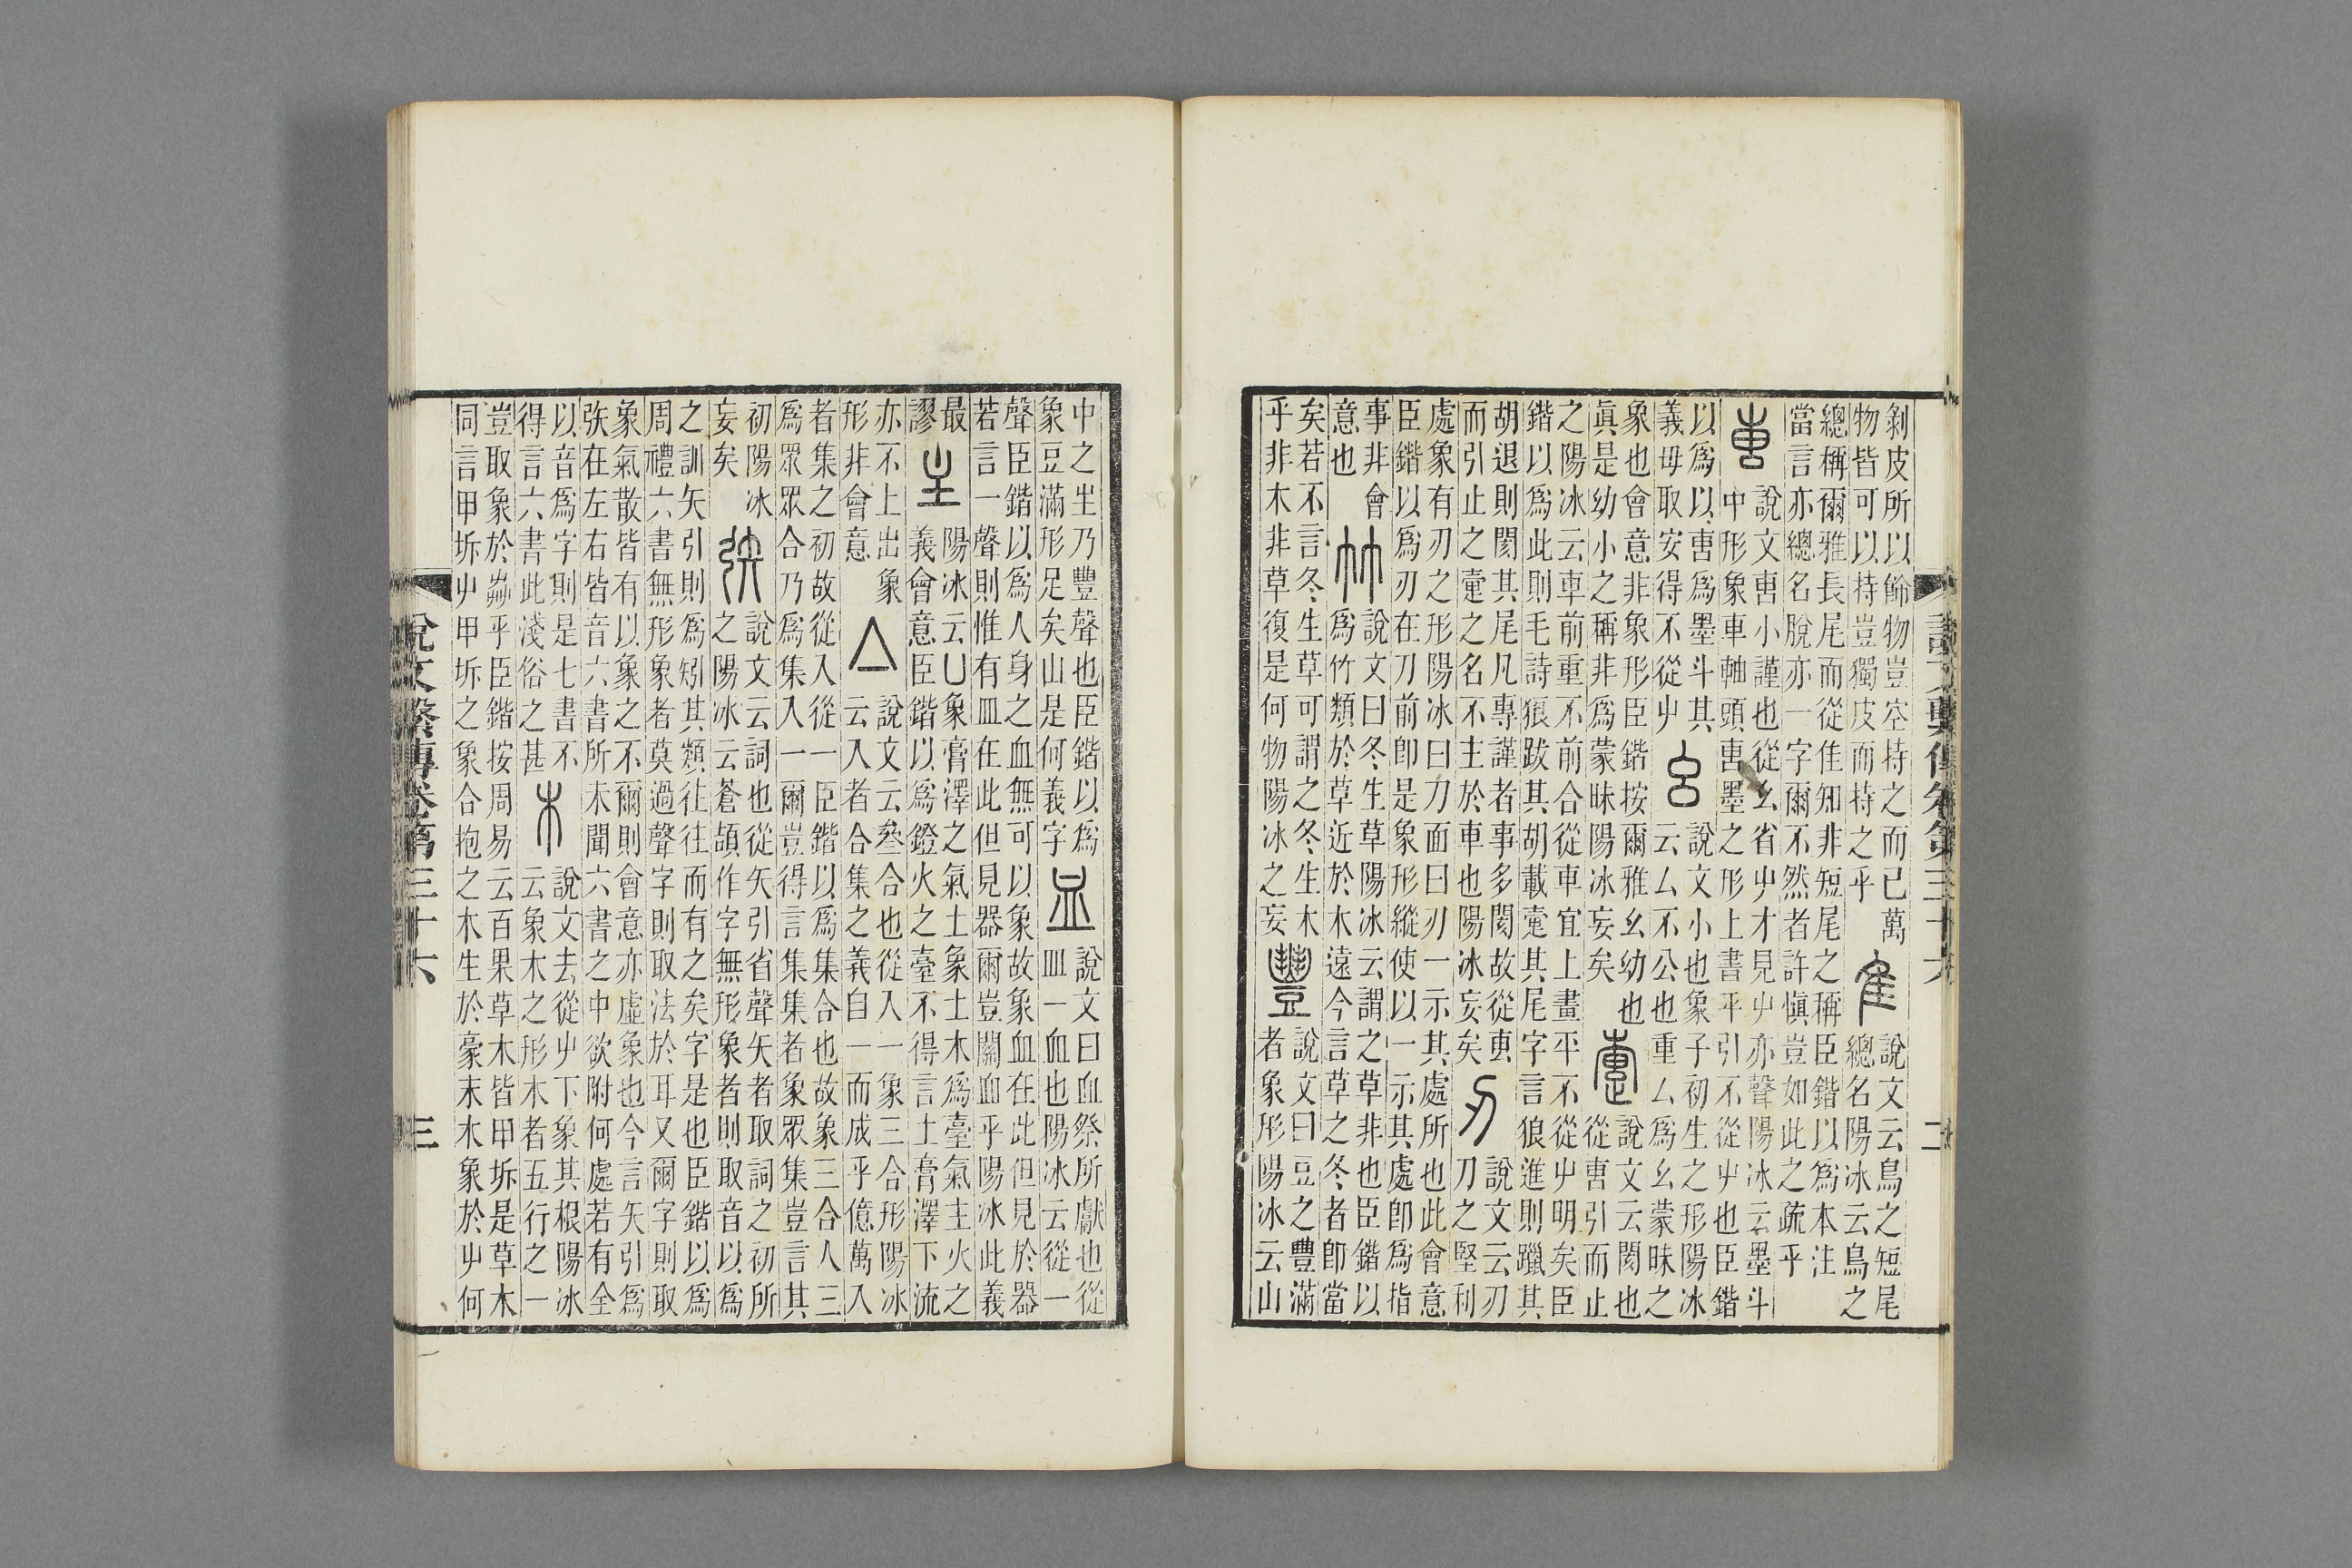 剝皮所以飾物豈容持之而已萬
物皆可以持豈獨皮而持之乎
隹
說文云鳥之短尾
總名陽冰云鳥之
總稱爾雅長尾而從隹知非短尾之稱臣鍇以爲本注
當言亦總名脫亦一字爾不然者許愼豈如此之疏乎
叀
說文叀小謹也從幺省屮才見屮亦聲陽冰云墨斗
中形象車軸頭叀墨之形上書平引不從屮也臣鍇
以爲以叀爲墨斗其
義毋取安得不從屮
幺
說文小也象子初生之形陽冰
云厶不公也重厶爲幺蒙昧之
象也會意非象形臣鍇按爾雅幺幼也
眞是幼小之稱非爲蒙昧陽冰妄矣
疐
說文云閡也
從叀引而止
之陽冰云車前重不前合從車宜上畫平不從屮明矣臣
鍇以爲此則毛詩狼跋其胡載疐其尾字言狼進則躐其
胡退則閡其尾凡專謹者事多閡故從叀
而引止之疐之名不主於車也陽冰妄矣
刃
說文云刃
刀之堅利
處象有刃之形陽冰曰刀面曰刃一示其處所也此會意
臣鍇以爲刃在刀前卽是象形縱使以一示其處卽爲指
事非會
意也
竹
說文曰冬生草陽冰云謂之草非也臣鍇以
爲竹類於草近於木遠今言草之冬者卽當
矣若不言冬生草可謂之冬生木
乎非木非草復是何物陽冰之妄
豐
說文曰豆之豐滿
者象形陽冰云山
說文繫傳卷第三十六
二
中之𡴀乃豐聲也臣鍇以爲
象豆滿形足矣山是何義字
血
說文曰血祭所獻也從
皿一血也陽冰云從一
聲臣鍇以爲人身之血無可以象故象血在此但見於器
若言一聲則惟有皿在此但見器爾豈關血乎陽冰此義
最
謬
主
陽冰云凵象膏澤之氣土象土木爲臺氣主火之
義會意臣鍇以爲鐙火之臺不得言土膏澤下流
亦不上出象
形非會意
亼
說文云叄合也從入一象三合形陽冰
云入者合集之義自一而成乎億萬入
者集之初故從入從一臣鍇以爲集合也故象三合人三
爲眾眾合乃爲集入一爾豈得言集集者象眾集豈言其
初陽冰
妄矣
矤
說文云詞也從矢引省聲矢者取詞之初所
之陽冰云蒼頡作字無形象者則取音以爲
之訓矢引則爲矧其類往往而有之矣字是也臣鍇以爲
周禮六書無形象者莫過聲字則取法於耳又爾字則取
象氣散皆有以象之不爾則會意亦虛象也今言矢引爲
矤在左右皆音六書所未聞六書之中欲附何處若有全
以音爲字則是七書不
得言六書此淺俗之甚
木
說文去從屮下象其根陽冰
云象木之形木者五行之一
豈取象於蕬乎臣鍇按周易云百果草木皆甲坼是草木
同言甲坼屮甲坼之象合抱之木生於豪末木象於屮何
說文繫傳卷第三十六
三